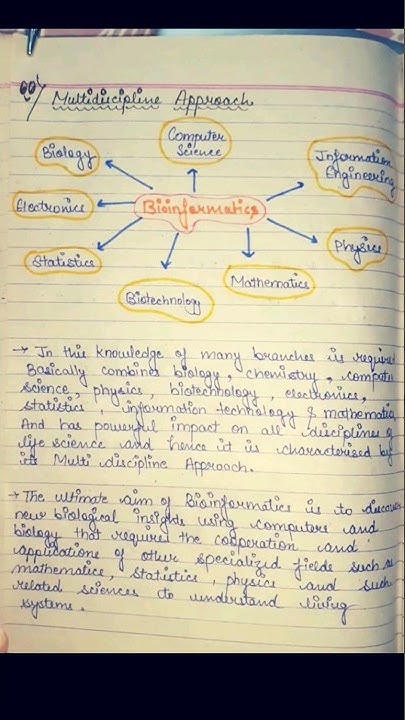 Multidiscipline Approach
Computer
Science
Biology
Information
Engineering
Electronics
Bioinformatics
Physics
Statistics
Mathematics
Biotechnology
→ In this knowledge of many branches is required
Basically combines biology, chemistry, computer
science, physics, biotechnology, electronics,
statistics, information technology & mathematics
And has powerful impact on all disciplines of
life science and hence it is characterised by
its Multi discipline Approach.
→ The ultimate aim of Bioinformatics is to discover
new biological insights using computers and
biology that required the cooperation and
applications of other specialized fields such as
mathematics, statistics, physics and such
related sciences to understand living
systems.